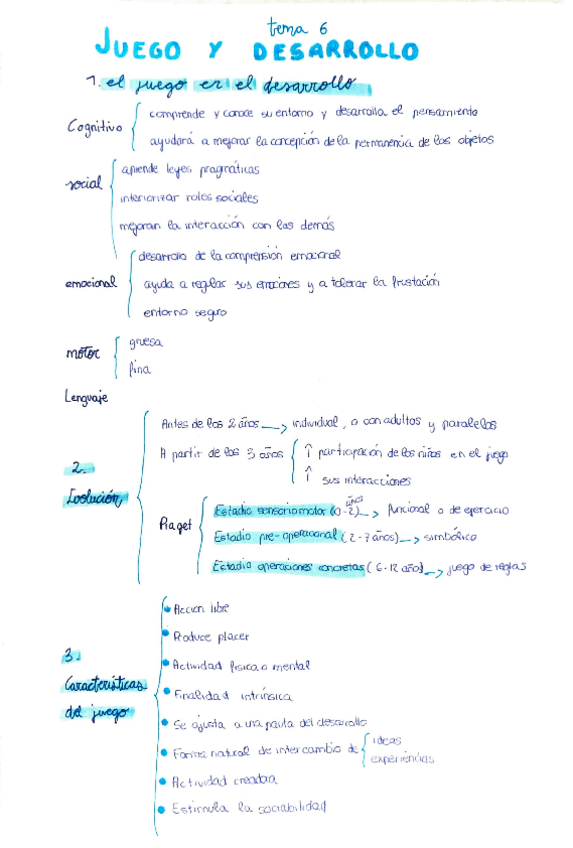 tema 6
JUEGO Y DESARROLLO
1. el juego en el desarrollo
Cognitivo
comprende y conoce su entorno y desarrolla el pensamiento
ayudará a mejorar la concepción de la permanencia de los objetos
social
aprende leyes pragmáticas
interiorizar roles sociales
mejoran la interacción con las demás
emocional
desarrollo de la comprensión emocional
ayuda a reglar sus emociones y a tolerar la frustación
entorno seguro
motor
gruesa
fina
Lenguaje
2. Evolución
Antes de los 2 años → individual, o con adultos y paralelos
A partir de los 3 años
↑ participación de los niños en el juego
↑ sus interacciones
Piaget
Estadio sensoriomotor (0-2) años → funcional o de ejercicio
Estadio pre-operacional (2-7 años) → simbólico
Estadio operaciones concretas (6-12 años) → juego de reglas
3. Características del juego
• Acción libre
• Produce placer
• Actividad física o mental
• Finalidad intrínsica
• Se ajusta a una pauta del desarrollo
• Forma natural de intercambio de
ideas
experiencias
• Actividad creadora
• Estimula la sociabilidad